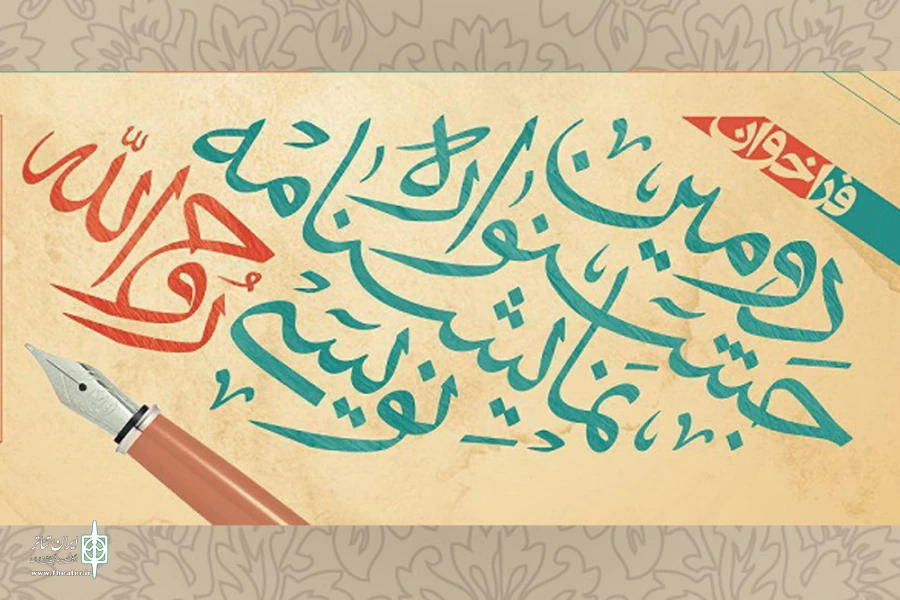 فراخوان
دومین
جشنواره
نمایشنامه
نویسی
روح الله
ایران تئاتر
www.Theater.ir